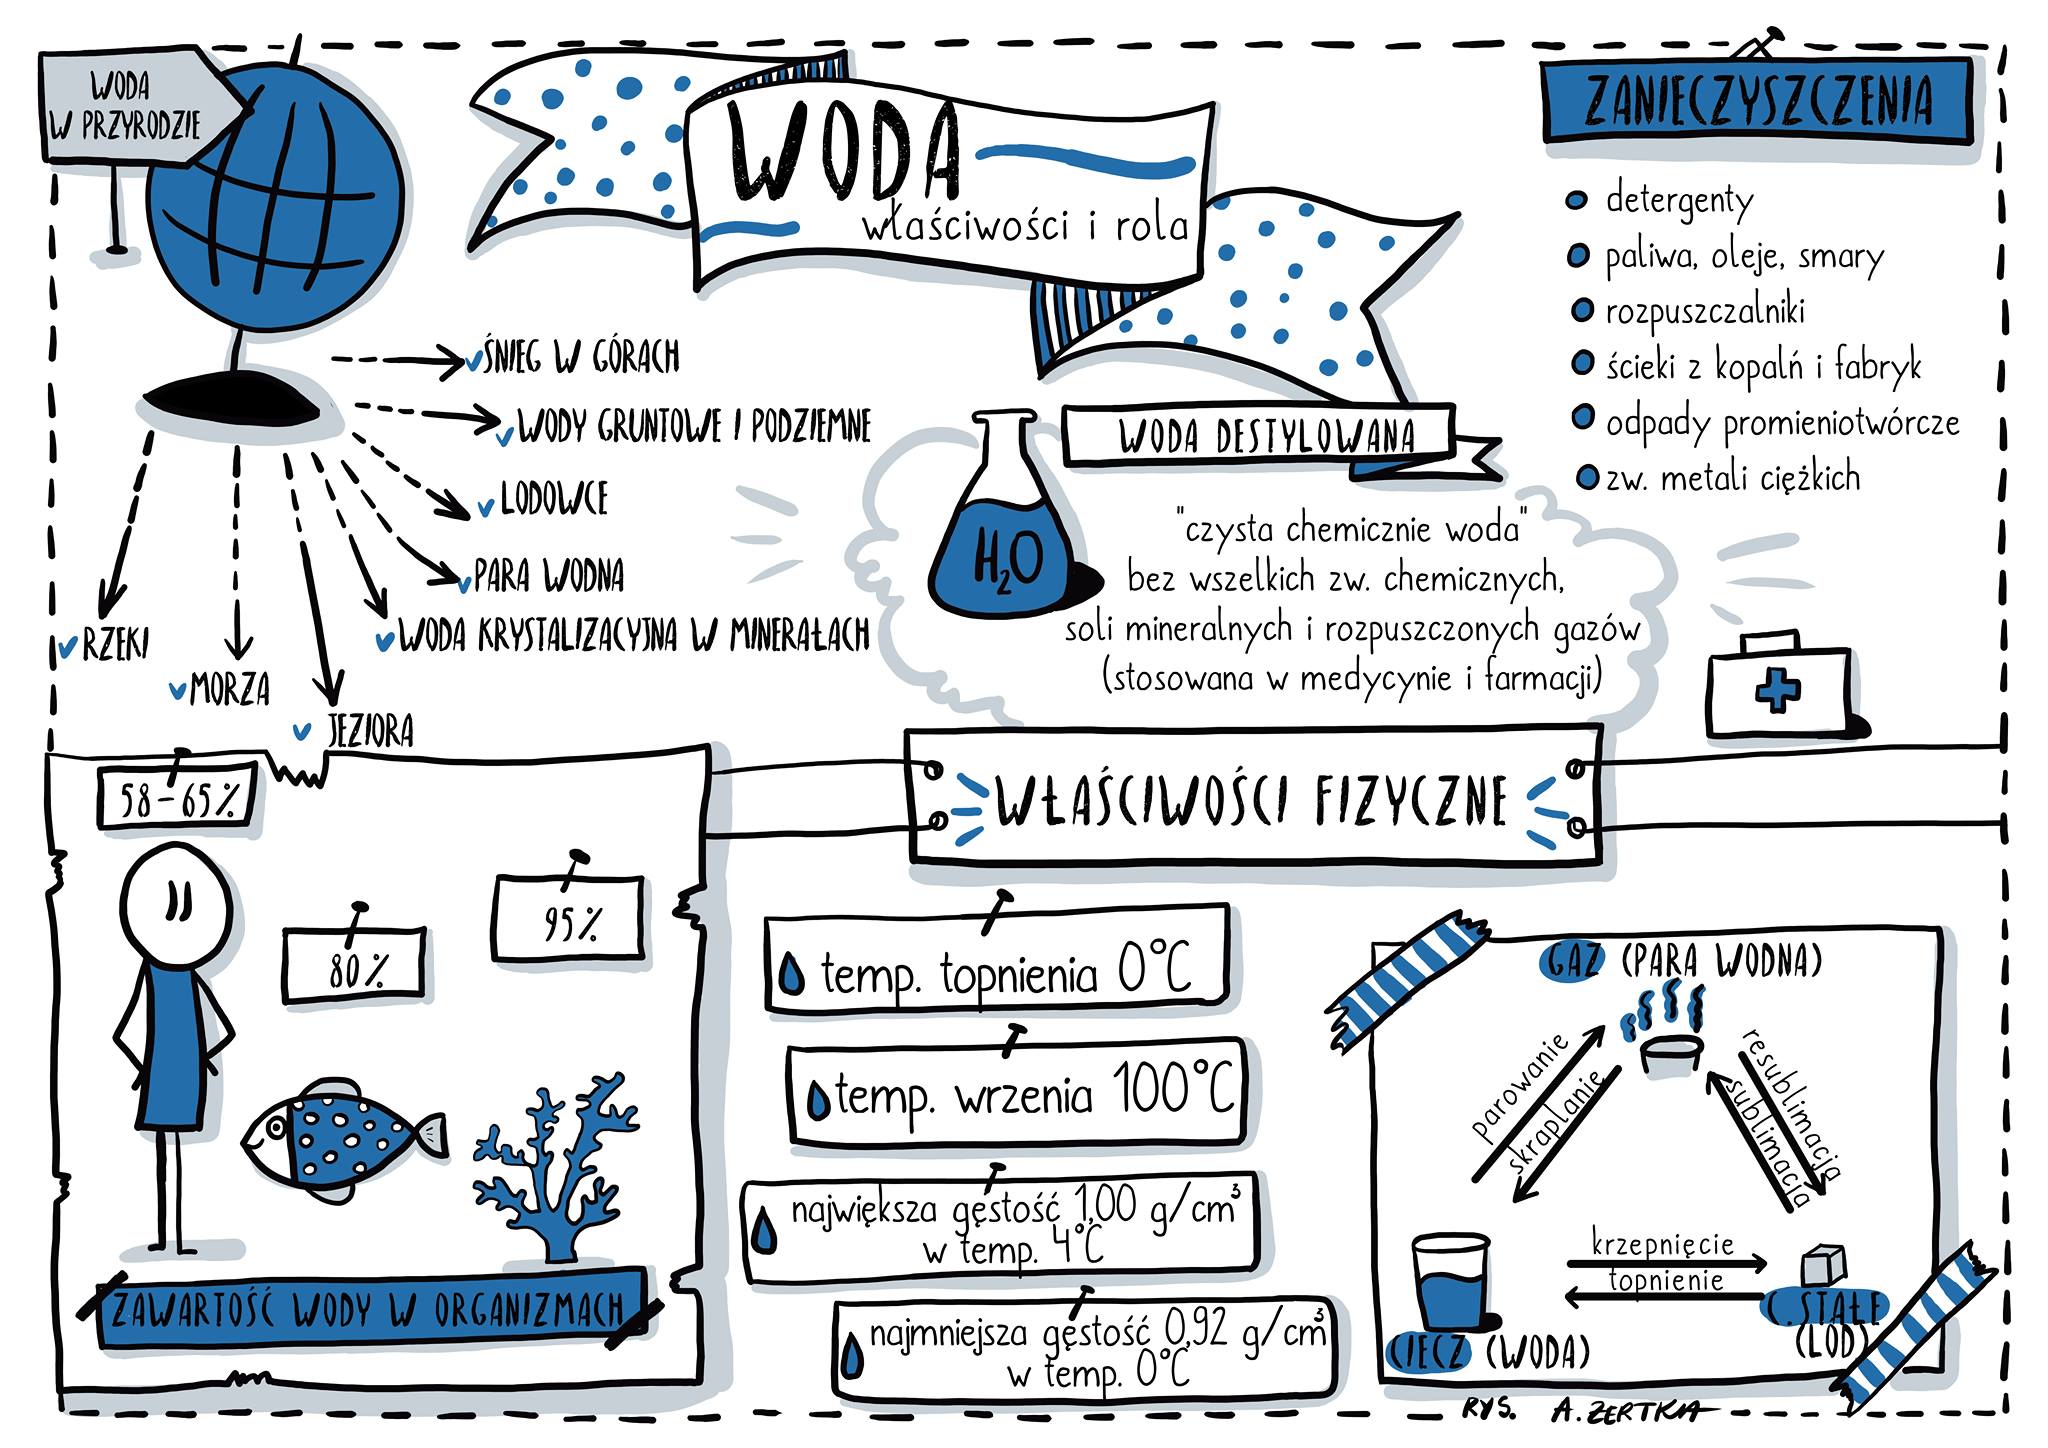 WODA
W PRZYRODZIE
WODA
właściwości i rola
ZANIECZYSZCZENIA
detergenty
paliwa, oleje, smary
rozpuszczalniki
ścieki z kopalń i fabryk
odpady promieniotwórcze
zw. metali ciężkich
ŚNIEG W GÓRACH
WODY GRUNTOWE I PODZIEMNE
LODOWCE
PARA WODNA
WODA KRYSTALIZACYJNA W MINERAŁACH
RZEKI
MORZA
JEZIORA
WODA DESTYLOWANA
H₂O
"czysta chemicznie woda"
bez wszelkich zw. chemicznych,
soli mineralnych i rozpuszczonych gazów
(stosowana w medycynie i farmacji)
58-65%
80%
95%
ZAWARTOŚĆ WODY W ORGANIZMACH
WŁAŚCIWOŚCI FIZYCZNE
temp. topnienia 0°C
temp. wrzenia 100°C
największa gęstość 1,00 g/cm³
w temp. 4°C
najmniejsza gęstość 0,92 g/cm³
w temp. 0°C
GAZ (PARA WODNA)
parowanie
skraplanie
resublimacja
sublimacja
krzepnięcie
topnienie
CIECZ (WODA)
C. STAŁE
(LÓD)
RYS. A. ZERTKA